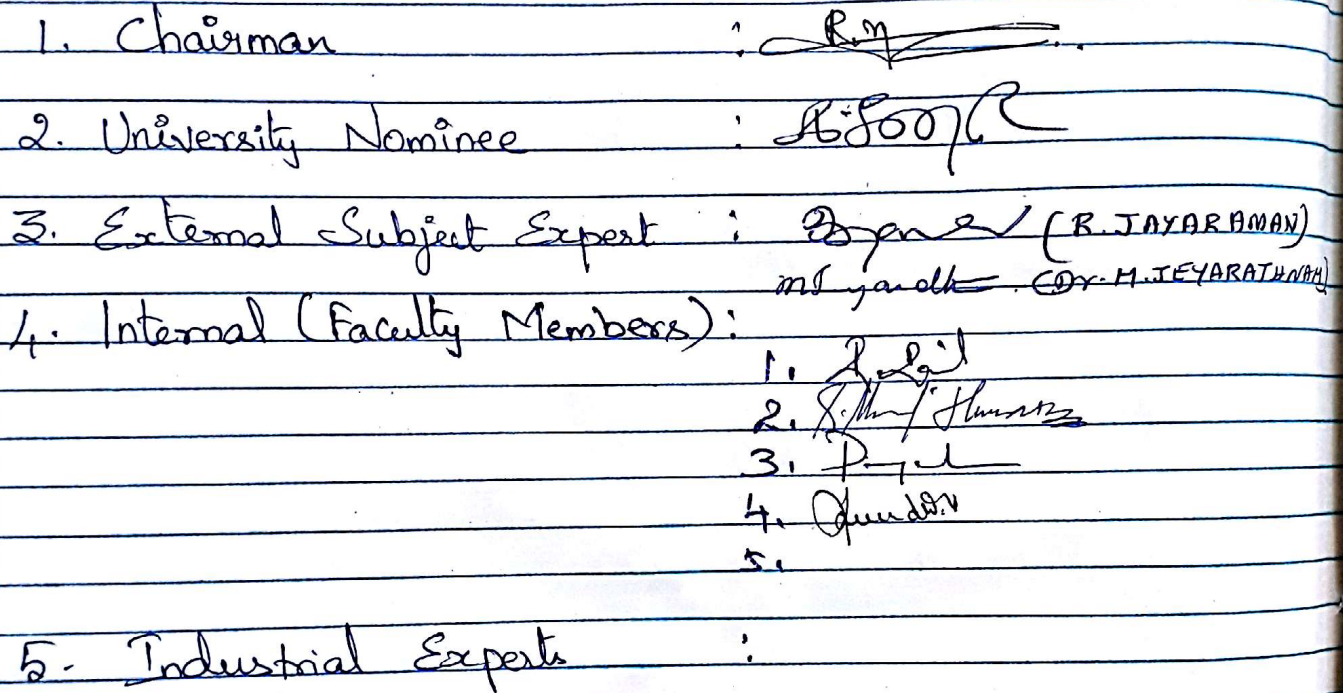 1. Chairman :
2. University Nominee :
3. External Subject Expert : (R. JAYARAMAN)
(Dr. M. JEYARATHNAM)
4. Internal (Faculty Members) :
1.
2.
3.
4.
5.
5. Industrial Experts :